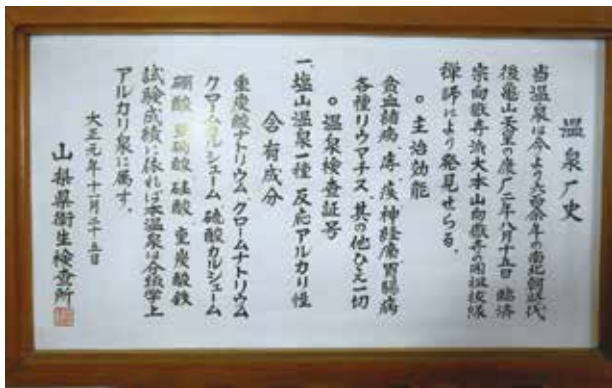 温泉ノ史
当温泉は今より六百余年の南北朝時代
後亀山天皇の康厂二年八月十五日 臨済
宗向嶽寺派大本山向嶽寺の開祖抜隊
禅師により発見せらる。
○主治効能
貧血諸病、痔、痰、神経痛、胃腸病
各種リウマチス、其の他ひえ一切
○温泉検査証号
一、塩山温泉一種 反応アルカリ性
含有成分
重炭酸ナトリウム クロームナトリウム
クロームカルシューム 硫酸カルシューム
硼酸 亜砒酸 硅酸 重炭酸鉄
試験成績に依れば本温泉は合級学上
アルカリ泉に属す。
大正元年十一月二十五日
山梨県衛生検査所